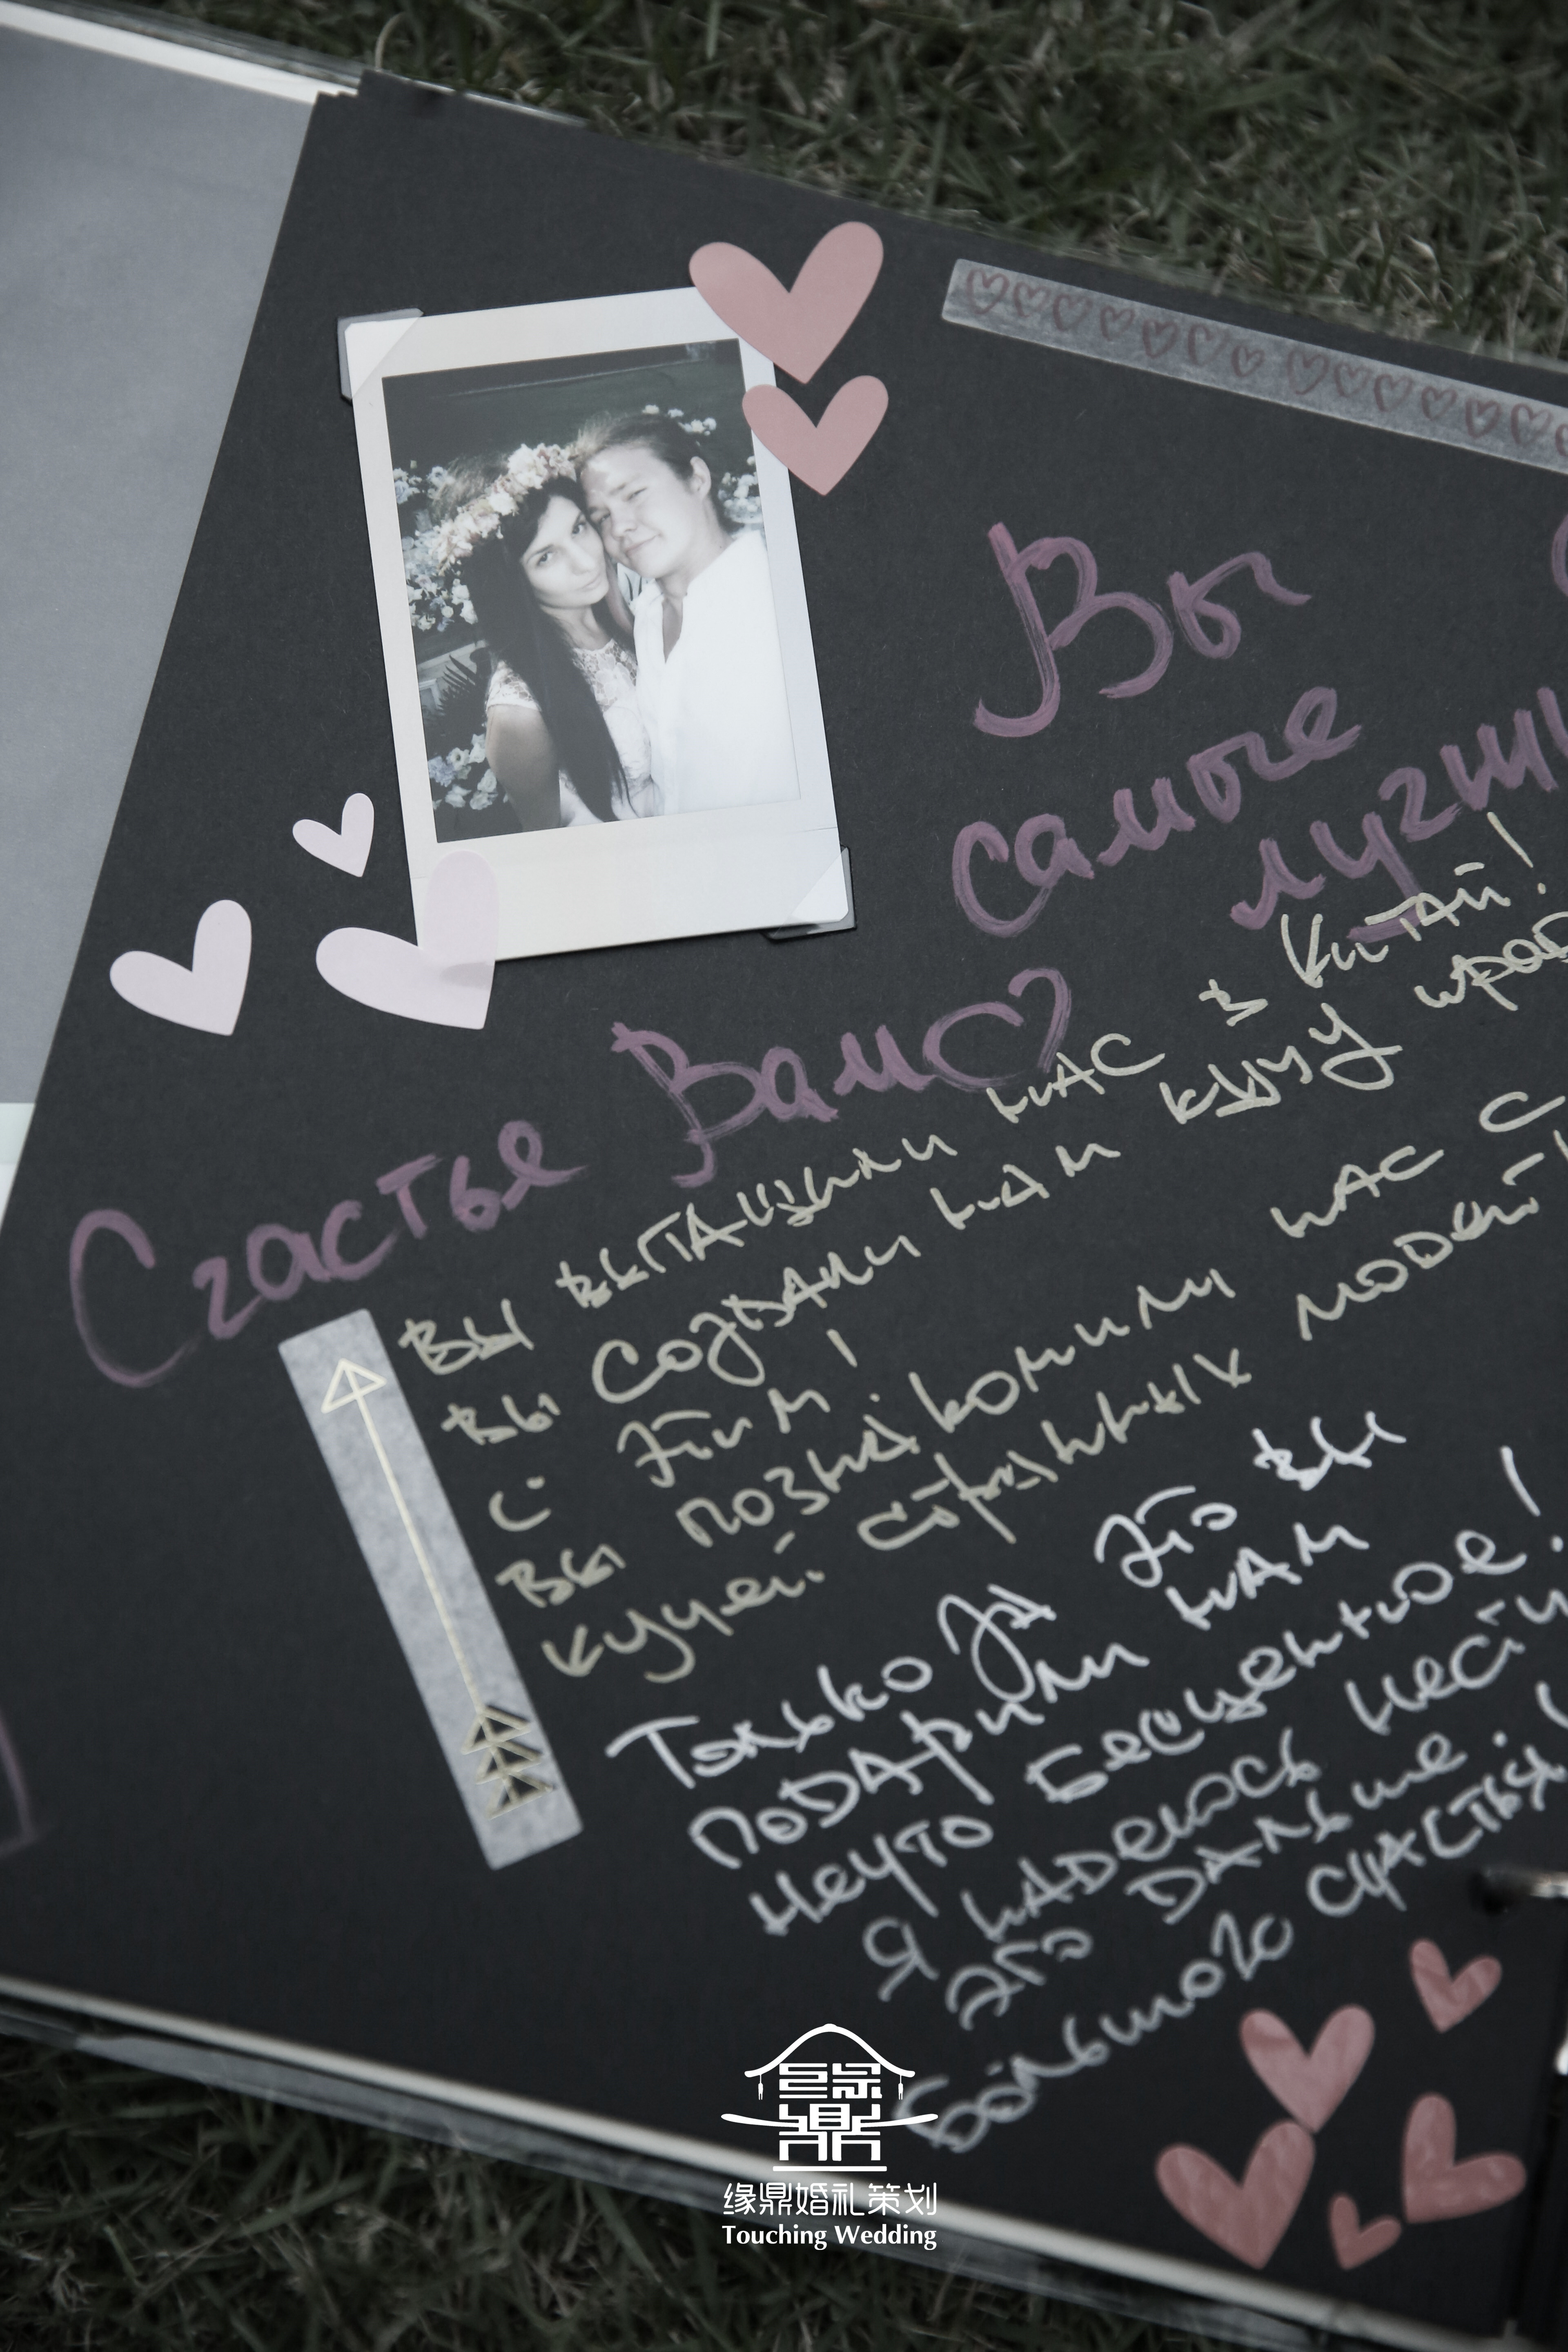 Вы
самые
Счастье Вам
Вы вытащили нас в Китай!
Вы создали нам кучу
с этим!
Вы познакомили нас с
кучей странных
Только за это вы
подарили нам
нечто бесценное!
Я надеюсь
это дальше.
большого счастья
缘鼎
缘鼎婚礼策划
Touching Wedding